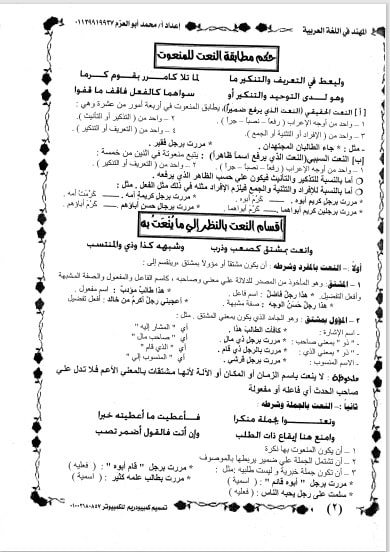 المهند في اللغة العربية
إعداد أ/ محمد أبو العزم ٠١١٣٩٩١٩٩٣٧
حكم مطابقة النعت للمنعوت
وليعط في التعريف والتنكير ما لما تلا كامرر بقوم كرما
وهو لدى التوحيد والتنكير أو سواهما كالفعل فاقف ما قفوا
[أ] النعت الحقيقي (النعت الذي يرفع ضميراً) يطابق المنعوت في أربعة أمور من عشرة وهي :
١ – واحد من أوجه الإعراب ( رفعاً – نصباً – جراً ) . ٢ – واحد من ( التذكير أو التأنيث ) .
٣ – واحد من ( الإفراد أو التثنية أو الجمع ) . ٤ – واحد من ( التعريف أو التنكير ) .
– مثل : * جاء الطالبان المجتهدان . * مررت برجل فقير .
[ب] النعت السببي (النعت الذي يرفع اسماً ظاهراً) : يتبع منعوته في اثنين من خمسة :
١ – واحد من أوجه الإعراب ( رفعاً – نصباً – جراً ) . ٢ – واحد من ( التعريف أو التنكير ) .
أما بالنسبة للتذكير والتأنيث فيكون على حسب الظاهر الذي يرفعه .
أما بالنسبة للإفراد و التثنية والجمع فيلزم الإفراد مثله في ذلك مثل الفعل . مثل :
* مررت برجل كريم أبوه . كَرُمَ أبوه . * مررت برجل كريمة أمه . كَرُمَت أمه .
* مررت برجلين كريم أبواهما . كَرُمَ أبواهما . * مررت برجال حسن آباؤهم . آباؤهم .
أقسام النعت بالنظر إلى ما يُنْعَتُ به
وانعت بمشتق كصعب وذرب وشبهه كذا وذي والمنتسب
أولاً :– النعت بالمفرد وشرطه : أن يكون مشتقاً أو مؤولاً بمشتق . وينقسم إلى :
١ – المشتق : هو المأخوذ من المصدر للدلالة على معنى وصاحبه ، كاسم الفاعل والمفعول والصفة المشبهة
وأفعل التفضيل . * هذا رجل فاضل : اسم فاعل . * هذا طالب مؤدب : اسم مفعول .
* هذا رجل حسن الوجه : صفة مشبهة . * أعجبني رجل أكرم من خالد : أفعل تفضيل
٢ – المؤول بمشتق : وهو الجامد الذي يكون بمعنى المشتق . مثل :
– اسم الإشارة : * كافأت الطالب هذا . أي " المشار إليه "
– " ذو " بمعنى صاحب : * مررت برجل ذي مال . أي " صاحب مال "
– " ذو " بمعنى الذي : * مررت بالرجل ذي قام . أي " الذي قام "
– الاسم المنسوب : * مررت برجل قرشي . أي " المنسوب إلي "
ملحوظة : لا ينعت باسم الزمان أو المكان أو الآلة لأنها مشتقات بالمعنى الأعم فلا تدل على
صاحب الحدث أي فاعله أو مفعولة
ثانياً :– النعت بالجملة وشرطه :
ونعتوا بجملة منكرا فأعطيت ما أعطيته خبرا
وامنع هنا إيقاع ذات الطلب وإن أتت فالقول أضمر تصب
١ – أن يكون المنعوت بها نكرة
٢ – أن تشتمل الجملة على ضمير يربطها بالموصوف
٣ – أن تكون جملة خبرية و ليست طلبيه :مثل : * مررت برجل " قام أبوه " : ( فعليه )
* مررت برجل " أبوه قائم " : ( اسمية ) * مررت بطالب علمه كثير : ( اسمية )
* سلمت على رجل يحبه الناس : ( فعلية )
(٢)